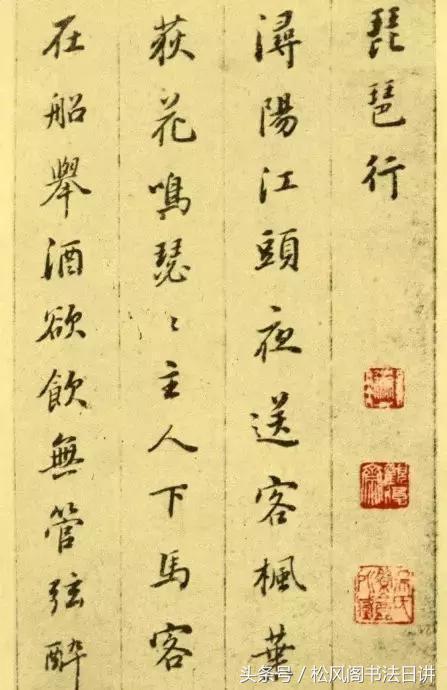 琵琶行
潯陽江頭夜送客楓葉
荻花鳴瑟〻主人下馬客
在船舉酒欲飲無管弦醉
头条号／松风阁书法日讲